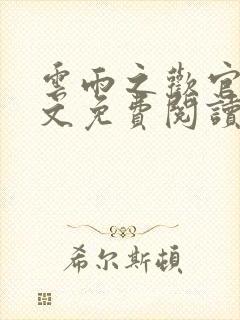 雲雨之歡官
文免費閱讀
希尔斯顿